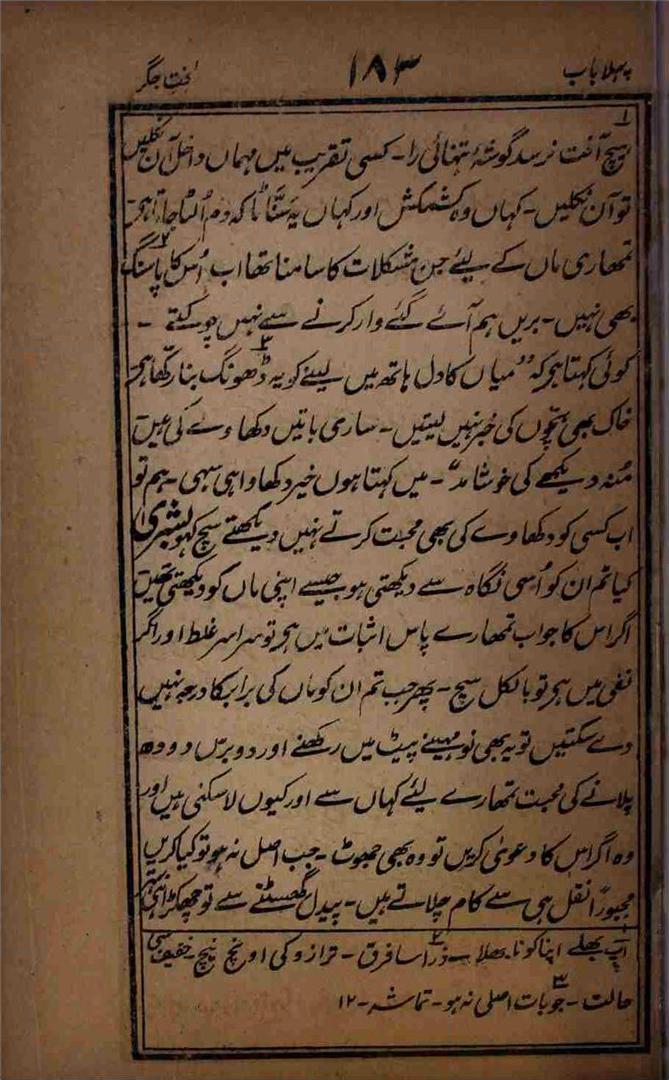 پہلا باب ۱۸۳ لختِ جگر
۱
ہیچ آفت نرسد گوشۂ تنہائی را۔ کسی تقریب میں مہماں داخل آن نکلیں
تو آن نکلیں۔ کہاں وہ کشمکش اور کہاں یہ سنّاٹا کہ دم اُلٹا جاتا ہی
تمھاری ماں کے لیئے جن مشکلات کا سامنا تھا اب اُس کا پاسنگ۲
بھی نہیں۔ بریں ہم آئے گئے وار کرنے سے نہیں چوکتے۔
کوئی کہتا ہی کہ ”میاں کا دل ہاتھ میں لینے کو یہ ڈھونگ۳ بنا رکھّا ہی
خاک بھی بچّوں کی خبر نہیں لیتیں۔ ساری باتیں دکھاوے کی ہیں
مُنہ دیکھے کی خوشامد“۔ میں کہتا ہوں خیر دکھاوا ہی سہی۔ ہم تو
اب کسی کو دکھاوے کی بھی محبت کرتے نہیں دیکھتے سچ کہو بشریٰ
کیا تم ان کو اُسی نگاہ سے دیکھتی ہو جیسے اپنی ماں کو دیکھتی تھیں
اگر اس کا جواب تمھارے پاس اثبات میں ہی تو سراسر غلط اور اگر
نفی میں ہی تو بالکل سچ۔ پھر جب تم ان کو ماں کی برابر کا درجہ نہیں
دے سکتیں تو یہ بھی نو مہینے پیٹ میں رکھنے اور دو برس دودھ
پلانے کی محبت تمھارے لیئے کہاں سے اور کیوں لا سکتی ہیں اور
وہ اگر اس کا دعویٰ کریں تو وہ بھی جھوٹ۔ جب اصل نہ ہو تو کیا کریں
مجبوراً نقل ہی سے کام چلاتے ہیں۔ پیدل گھسٹنے سے تو چھکڑا ہی بہتر
۱ آپ بھلے اپنا کونا بھلا ۲ ذرا سا فرق۔ ترازو کی اونچ نیچ خفیف سی
حالت۔ ۳ جو بات اصلی نہ ہو۔ تماشہ۔ ۱۲